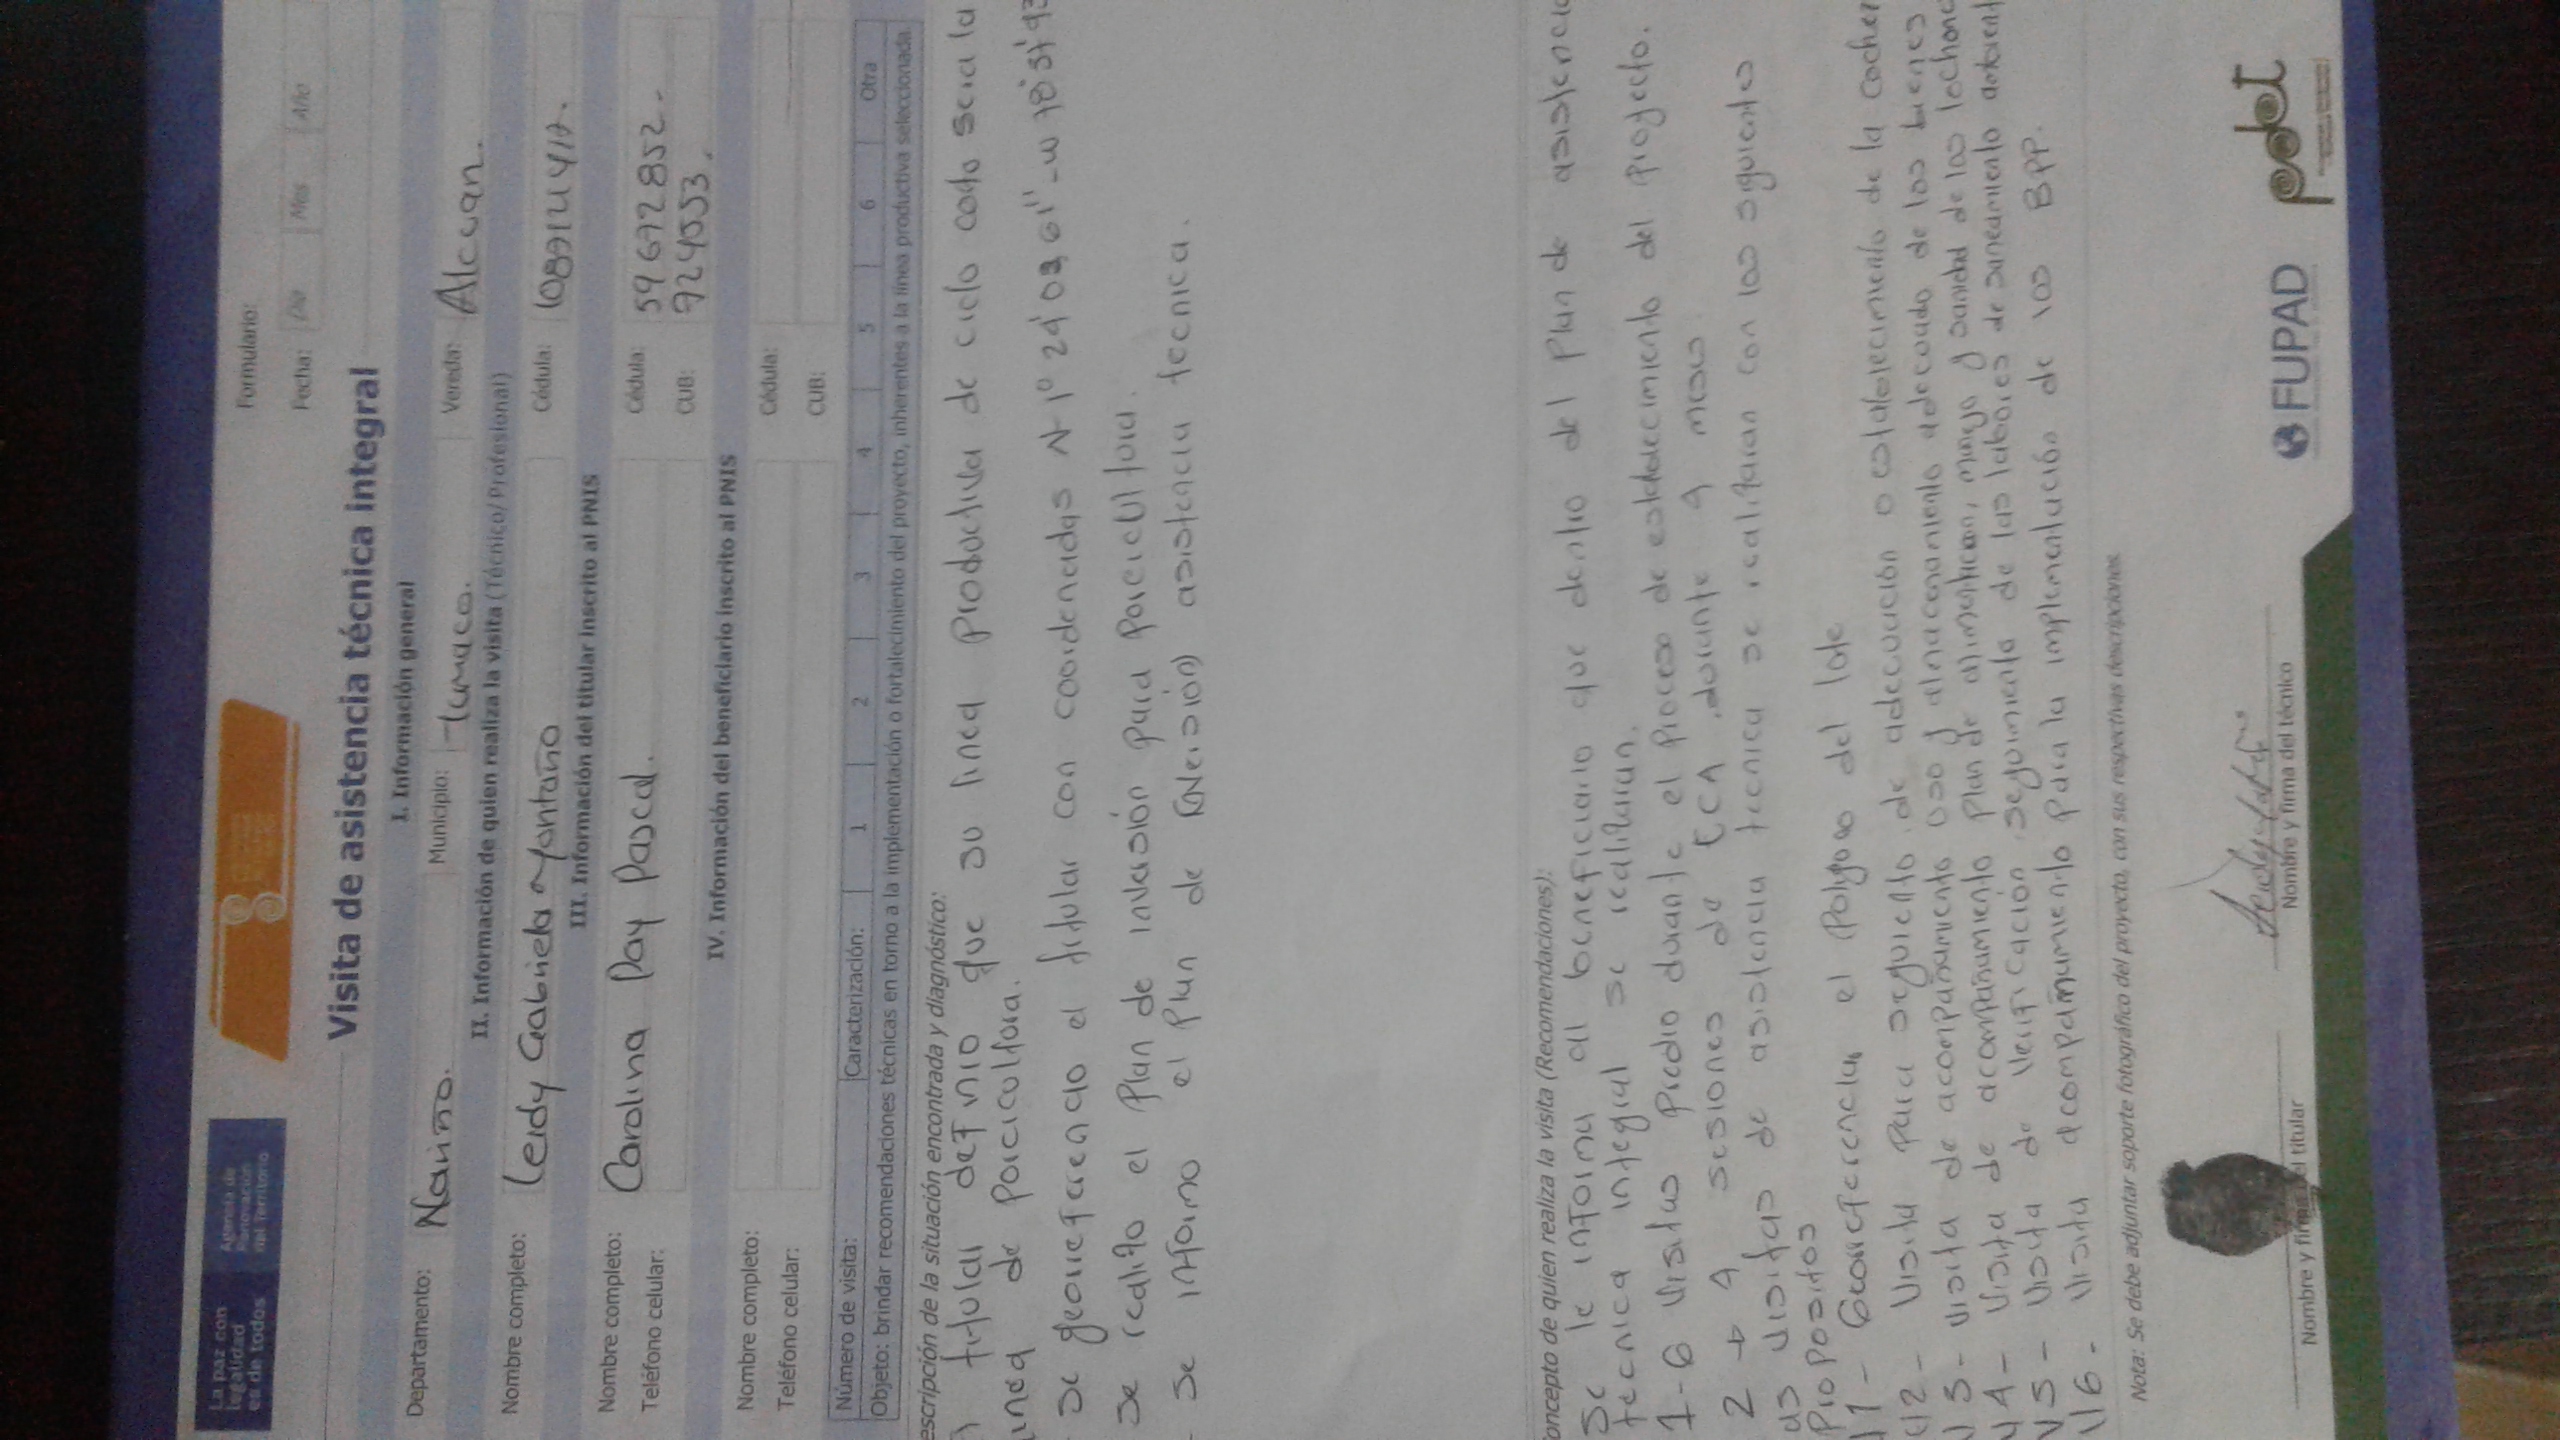 La paz con
legalidad
es de todos
Agencia de
Renovación
del Territorio
Formulario:
Fecha: Día Mes Año
Visita de asistencia técnica integral
I. Información general
Departamento: Nariño. Municipio: tumaco. Vereda: Alcuan.
II. Información de quien realiza la visita (Técnico/Profesional)
Nombre completo: Leidy Gabriela Montaño Cédula:
III. Información del titular inscrito al PNIS
Nombre completo: Carolina Pay Pascal. Cédula: 59672852.
Teléfono celular: CUB: 924553.
IV. Información del beneficiario inscrito al PNIS
Nombre completo: Cédula:
Teléfono celular: CUB:
Número de visita: Caracterización: 1 2 3 4 5 6 Otra
Objeto: brindar recomendaciones técnicas en torno a la implementación o fortalecimiento del proyecto, inherentes a la línea productiva seleccionada.
escripción de la situación encontrada y diagnóstico:
titular definio que su linea Productiva de ciclo corto seria la
linea de Poricultora.
- se georeferencio el titular con coordenadas N 1°
- se realito el Plan de inversión Para Poricultora.
- se informo el Plan de (Inversión) asistencia tecnica.
oncepto de quien realiza la visita (Recomendaciones):
se le informa al beneficiario que dentro del Plan de asistencia
tecnica integral se realitaran.
1-6 visitas Predio durante el Proceso de establecimiento del Proyecto.
2 → 4 sesiones de ECA, durante 4 meses
as visitas de asistencia tecnica se realitaran con los siguientes
Propositos
V1- Georeferenciar el Poligono del lote
V2- Visita Para seguiento de adecuación o establecimiento de la cocher
V3- visita de acompañamiento uso y almacenamiento adecuado de los bienes
V4- Visita de acompañamiento Plan de alimentacion, manejo y sanidad de los lechone
V5- Visita de Verificación seguimiento de las labores de saneamiento ambient
V6- Visita acompañamiento Para la implementación de las BPP.
Nota: Se debe adjuntar soporte fotográfico del proyecto, con sus respectivas descripciones.
Nombre y firma del titular
Nombre y firma del técnico
FUPAD
pdet